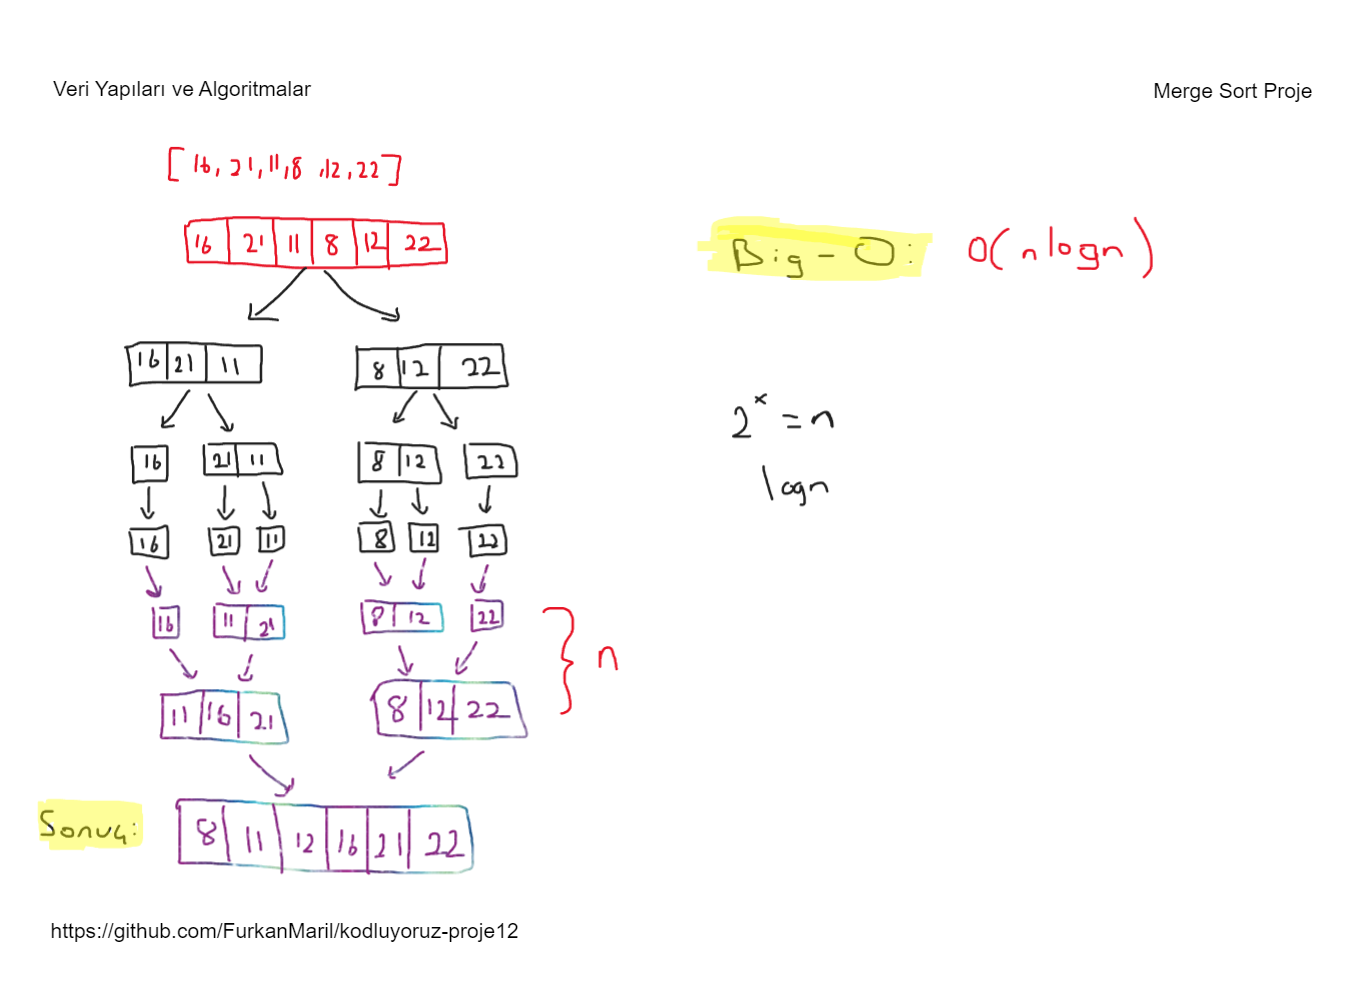 Veri Yapıları ve Algoritmalar
Merge Sort Proje
[16, 21, 11, 8, 12, 22]
16 21 11 8 12 22
Big-O: O(nlogn)
16 21 11 8 12 22
2ˣ = n
16 21 11 8 12 22
logn
16 21 11 8 12 22
16 11 21 8 12 22
n
11 16 21 8 12 22
Sonuç: 8 11 12 16 21 22
https://github.com/FurkanMaril/kodluyoruz-proje12